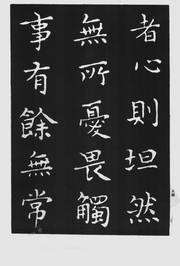 者心則坦然
無所憂畏觸
事有餘無常